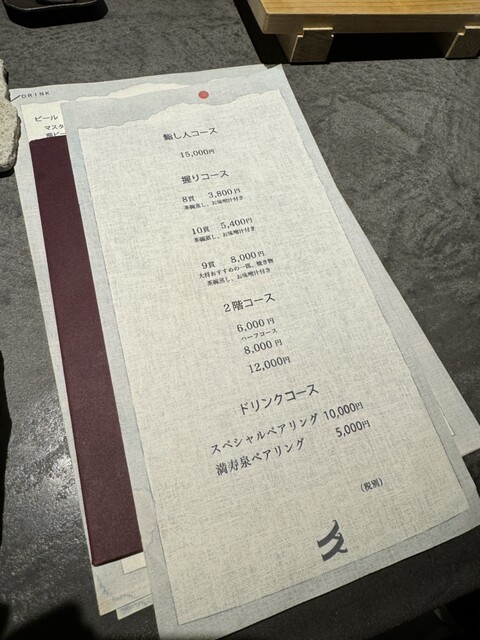 DRINK
ビール
マスタ
鮨し人コース
15,000円
握りコース
8貫 3,800円
茶碗蒸し、お味噌汁付き
10貫 5,400円
茶碗蒸し、お味噌汁付き
9貫 8,000円
大将おすすめの一品、焼き物
茶碗蒸し、お味噌汁付き
2階コース
6,000円
ハーフコース
8,000円
12,000円
ドリンクコース
スペシャルペアリング 10,000円
満寿泉ペアリング 5,000円
(税別)